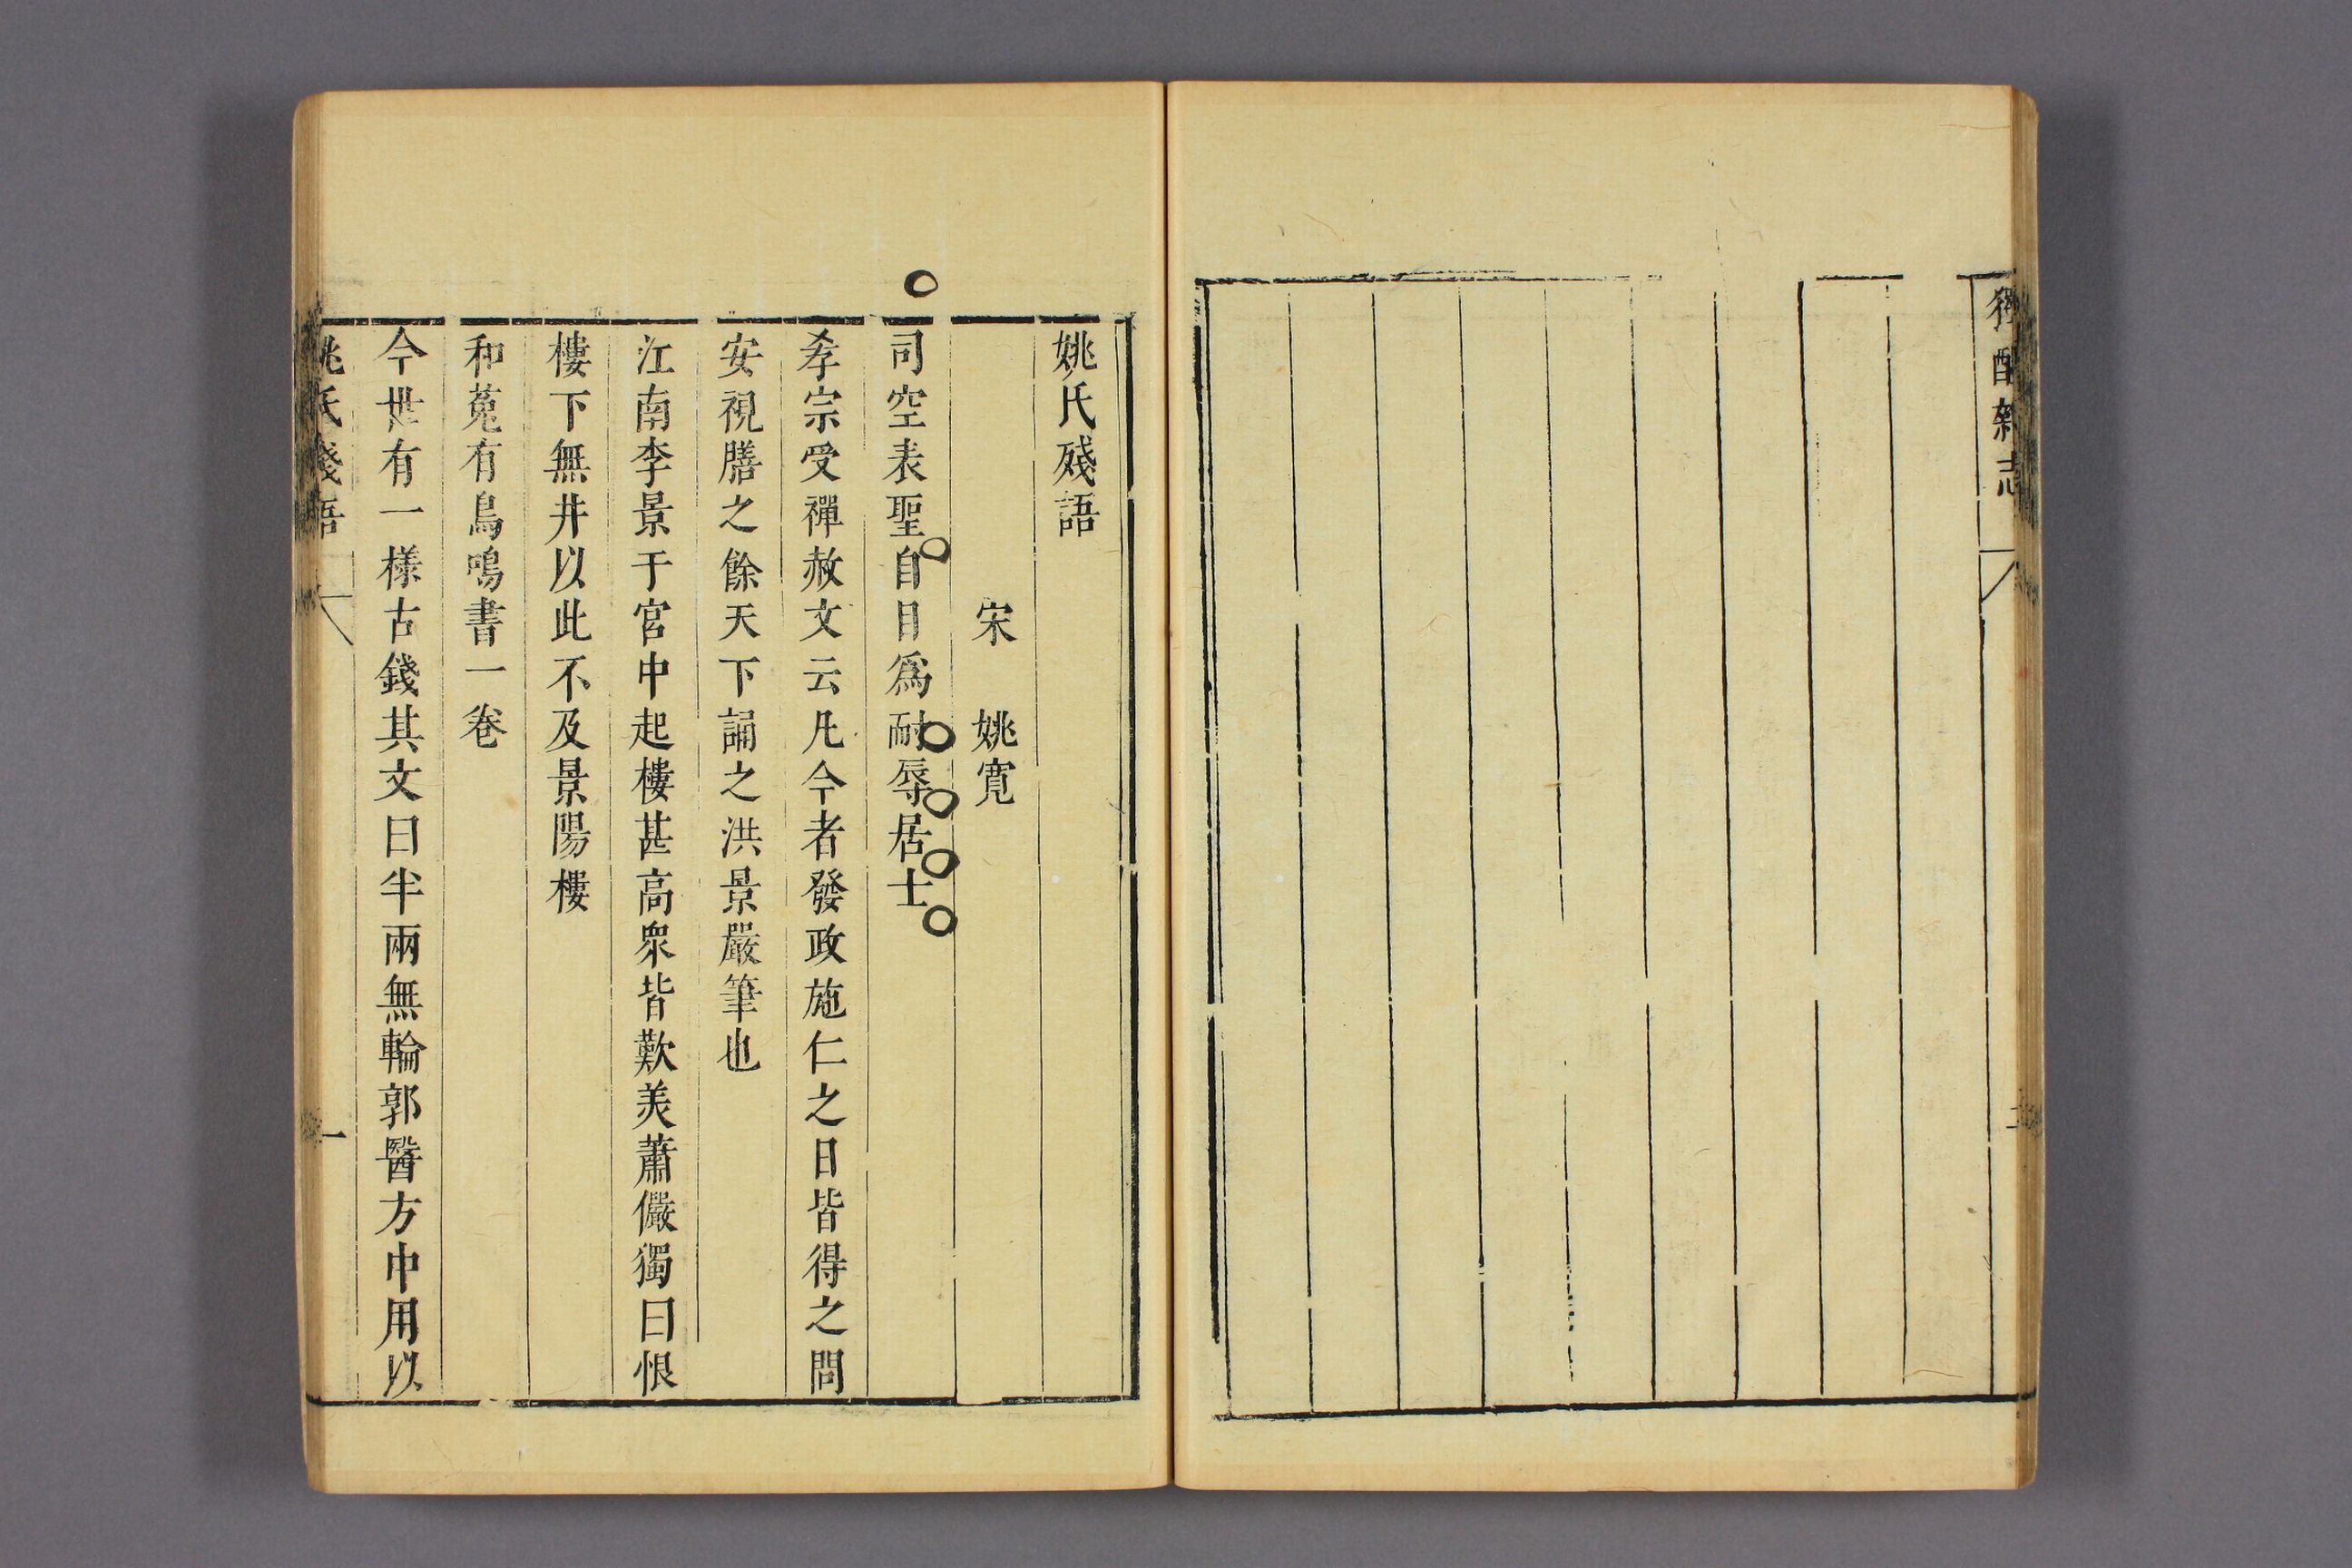 獨醒雜志
二
姚氏殘語
宋 姚寬
司空表聖自目爲耐辱居士
孝宗受禪赦文云凡今者發政施仁之日皆得之問
安視膳之餘天下誦之洪景嚴筆也
江南李景于宮中起樓甚高衆皆歎美蕭儼獨曰恨
樓下無井以此不及景陽樓
和菟有鳥鳴書一卷
今世有一㨾古錢其文曰半兩無輪郭醫方中用以
姚氏殘語
一